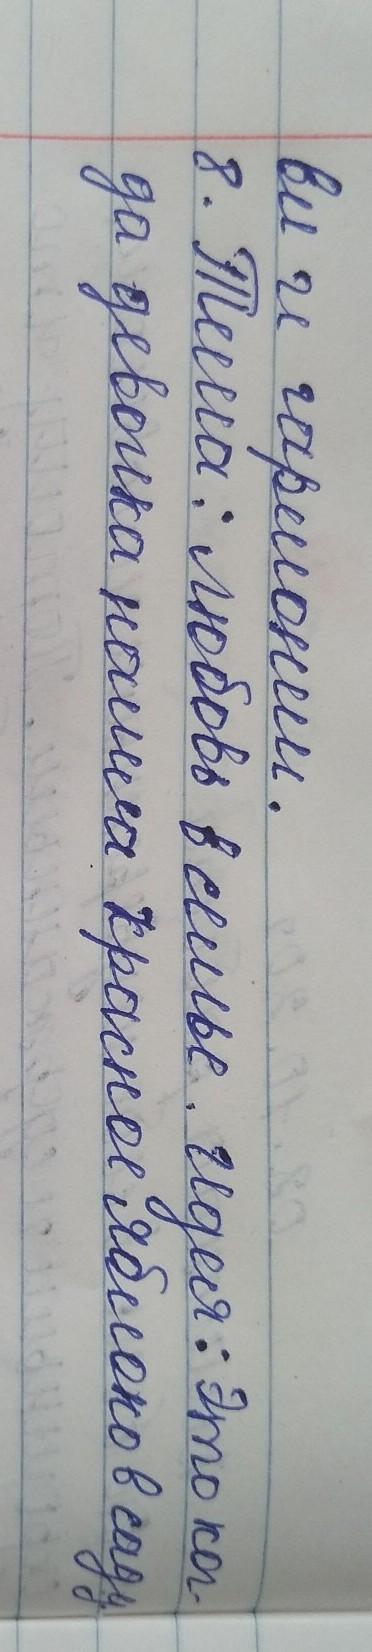 ви и гармонии.
8. Тема: Любовь в семье. Идея: Это ког-
да девочка нашла красное яблоко в саду